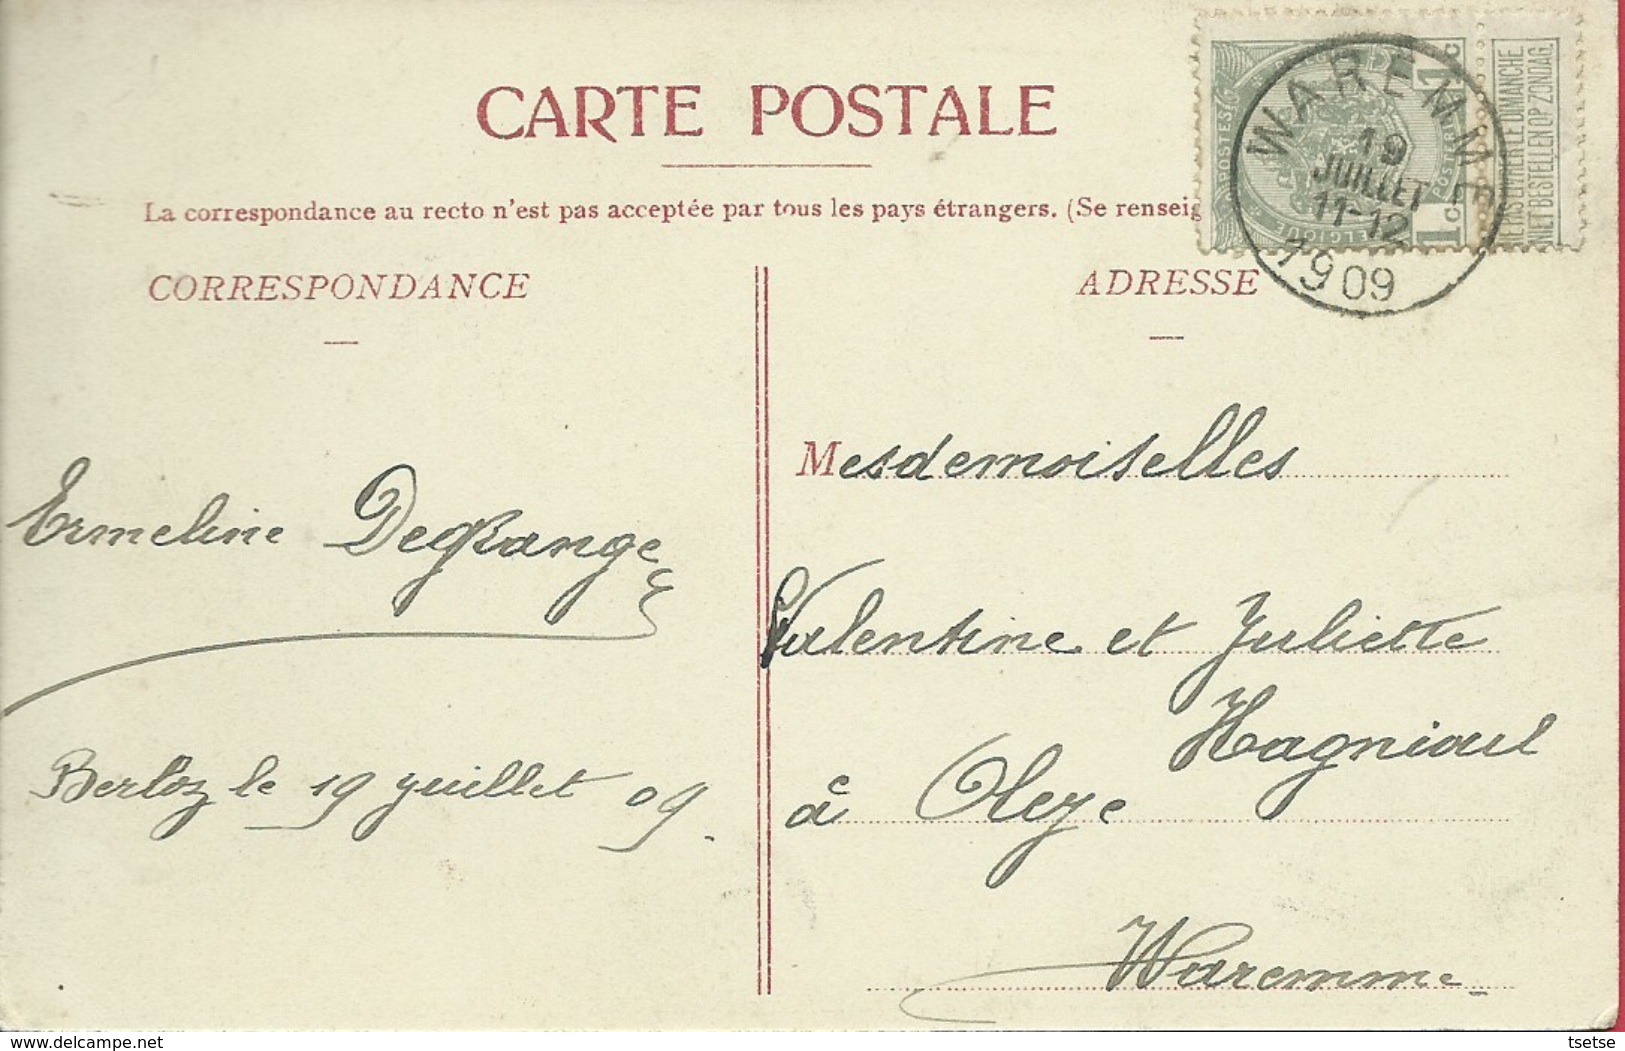 CARTE POSTALE
La correspondance au recto n'est pas acceptée par tous les pays étrangers. (Se renseig
CORRESPONDANCE
ADRESSE
WAREMME
19
JUILLET
11-12
1909
POSTES
BELGIQUE
1c
1c
NE PAS LIVRER LE DIMANCHE.
NIET BESTELLEN OP ZONDAG.
Ermeline Degrange
Berloz le 19 juillet 09.
Mesdemoiselles
Valentine et Juliette
Hagnioul
à Oleye
Waremme
delcampe.net
tsetse